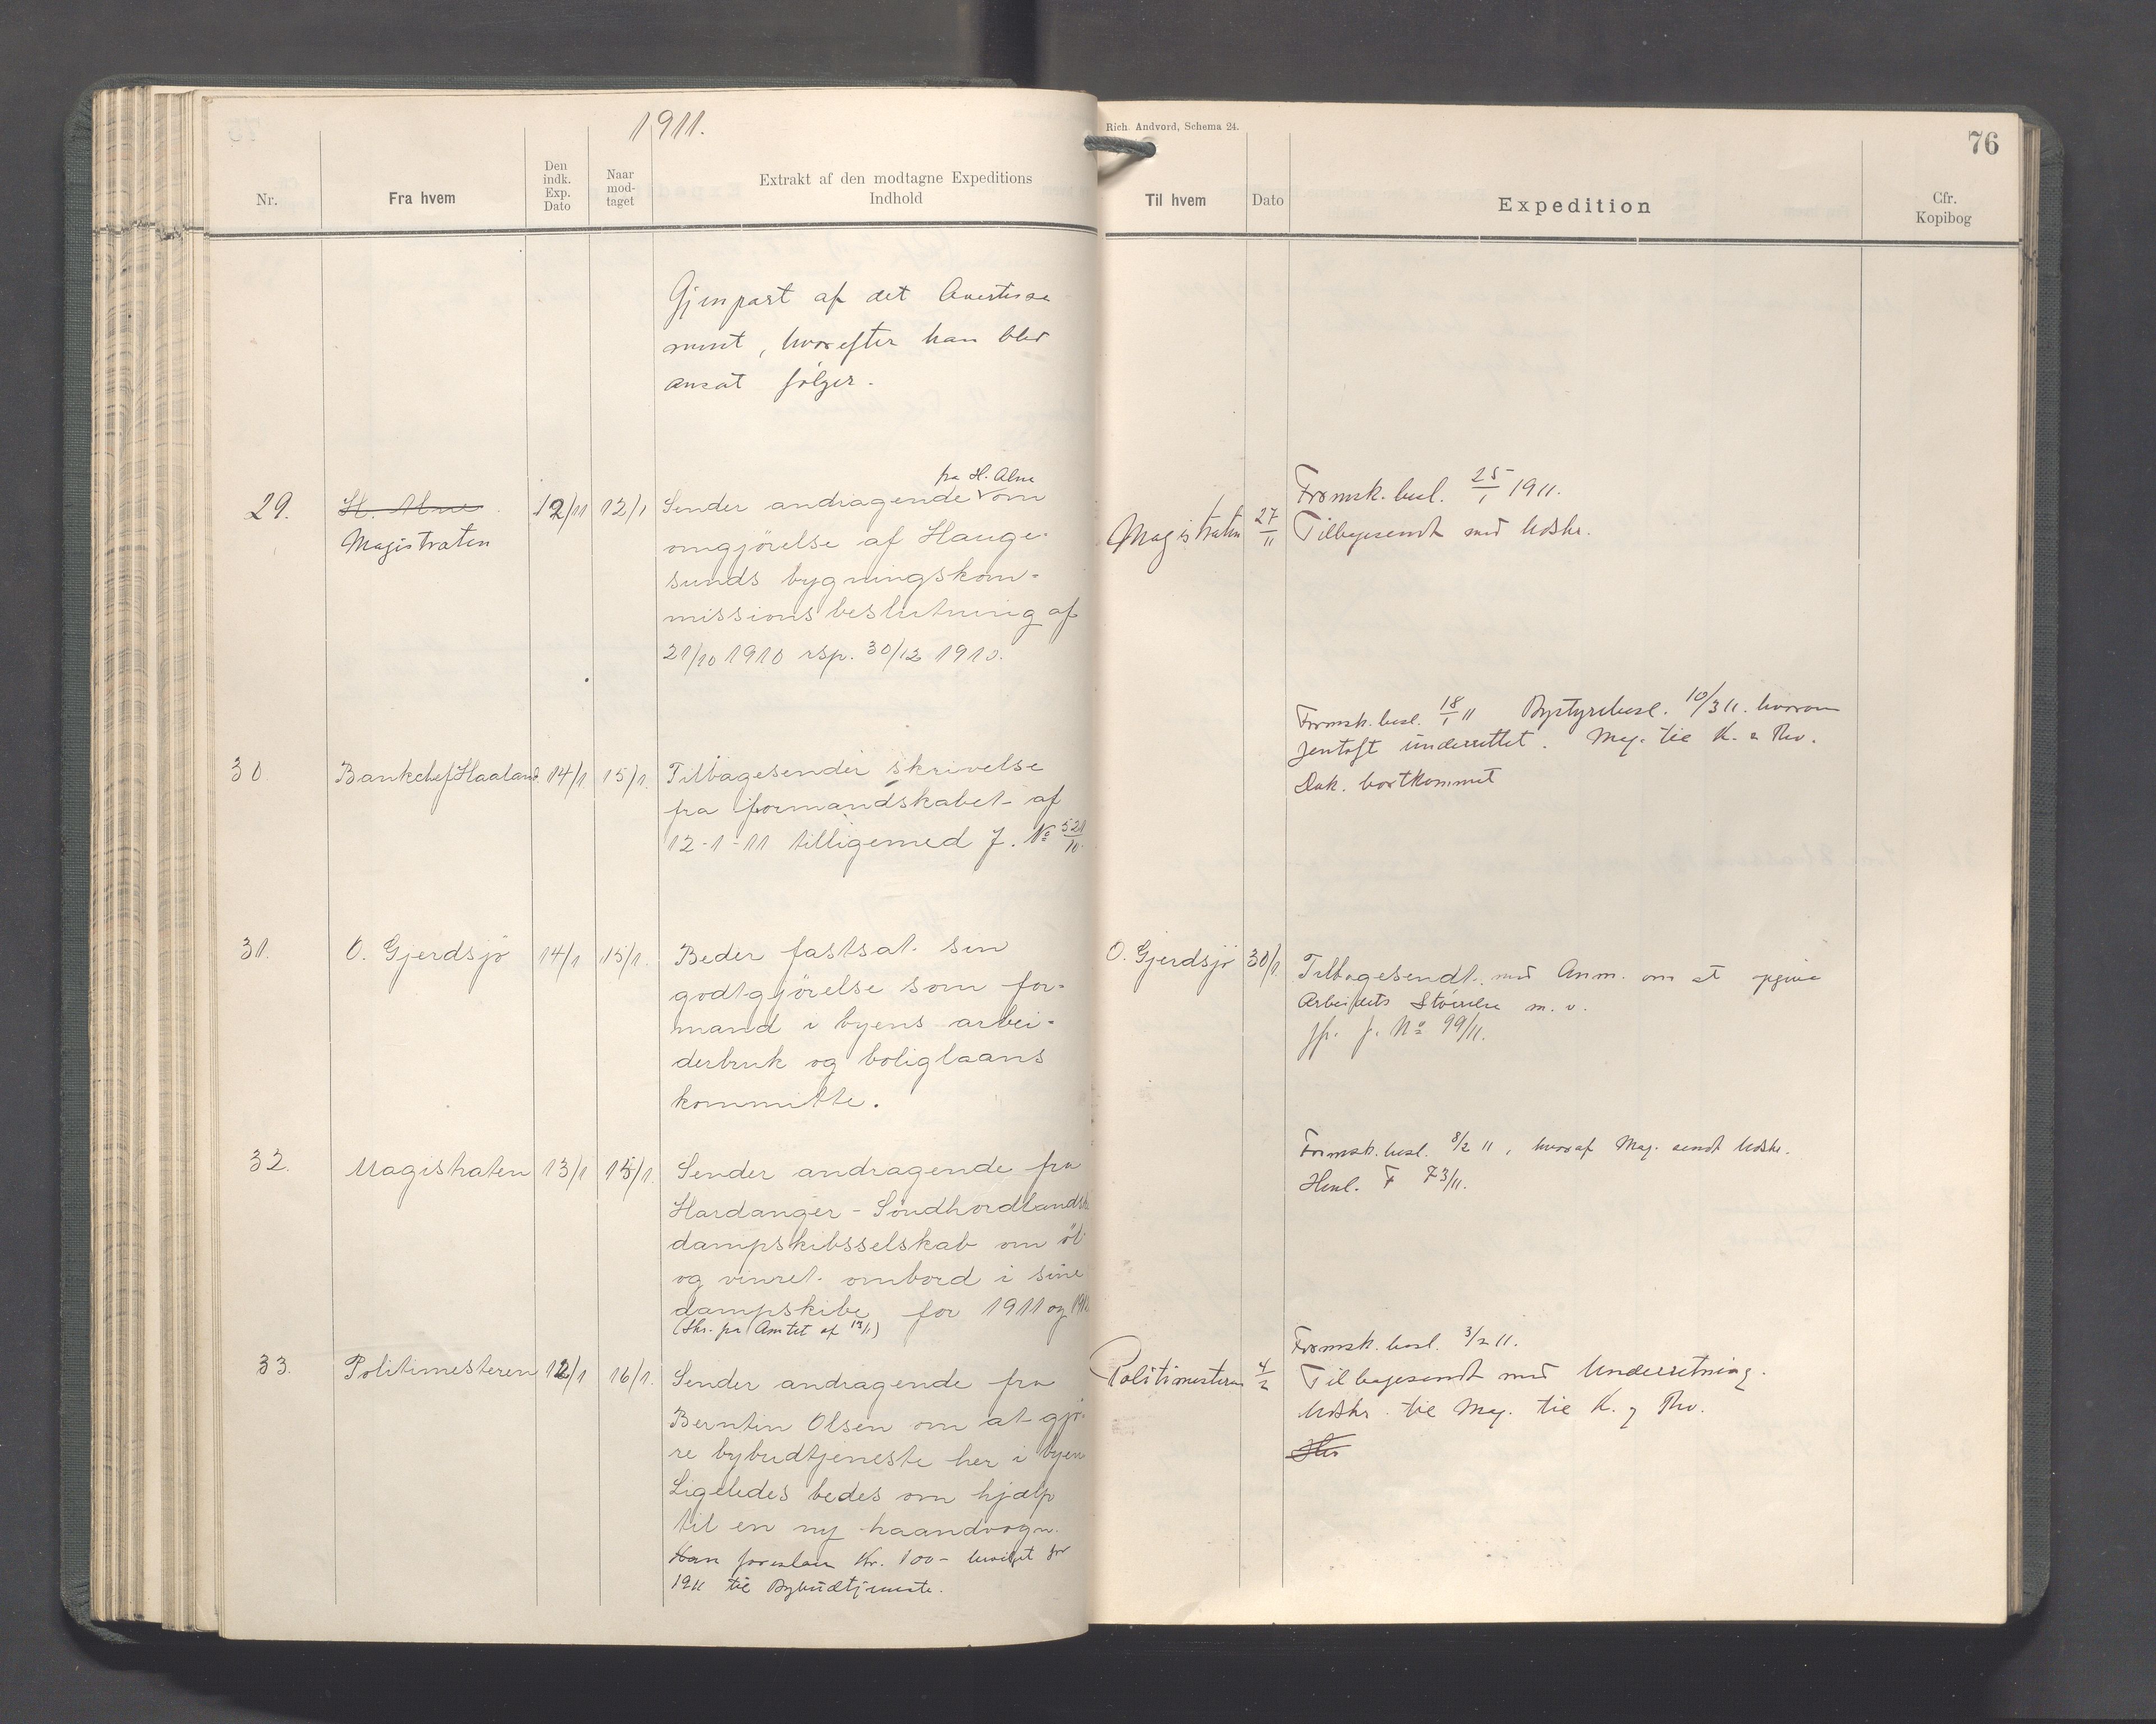 1911.
Nr.
Fra hvem
Den indk. Exp. Dato
Naar mod- taget
Extrakt af den modtagne Expeditions
Indhold
Gjenpart af det Avertisse
ment, hvorefter han blev
ansat følger.
29.
H. Alne
Magistraten
12/11
12/1
fra H. Alne
Sender andragende om
omgjörelse af Hauge-
sunds bygningskom-
missions beslutning af
21/10 1910 rsp. 30/12 1910.
30
Bankchef Haaland
14/1
15/1.
Tilbagesender skrivelse
fra formandskabet af
12-1-11 tilligemed J. No 521/10.
31.
O. Gjerdsjö
14/1
15/1.
Beder fastsat sin
godtgjörelse som for-
mand i byens arbei-
derbruk og boliglaans
kommitte.
32.
Magistraten
13/1
15/1.
Sender andragende fra
Hardanger - Söndhordlandske
dampskibsselskab om öl
og vinret ombord i sine
dampskibe for 1911 og 1912
(Skr. fra Amtet af
33.
Politimesteren
12/1
16/1.
Sender andragende fra
Berntin Olsen om at gjö-
re bybudtjeneste her i byen
Ligeledes bedes om hjælp
til en ny haandvogn.
Han foreslaar Kr. 100- bevilget for
1911 til Bybudtjeneste.
Rich. Andvord, Schema 24.
76
Til hvem
Dato
Expedition
Cfr.
Kopibog
Formsk. besl. 25/1 1911.
Magistraten
27/11
Tilbagesendt med Udskr.
Formsk. besl. 18/1 11 Bystyrebesl. 10/3 11. hvorom
Jentoft underrettet. Mag. til K. & Rev.
Dok. bortkommet
O. Gjerdsjö
30/1.
Tilbagesendt med Anm. om at opgive
Arbeidets Størrelse m. v.
jfr. J. No 99/11.
Formsk. besl. 8/2 11, hvoraf Mag. sendt Udskr.
Henl. F 73/11.
Formsk. besl. 3/2 11.
Politimesteren
4/2
Tilbagesendt med Underretning.
Udskr. til Mag. til K. og Rev.